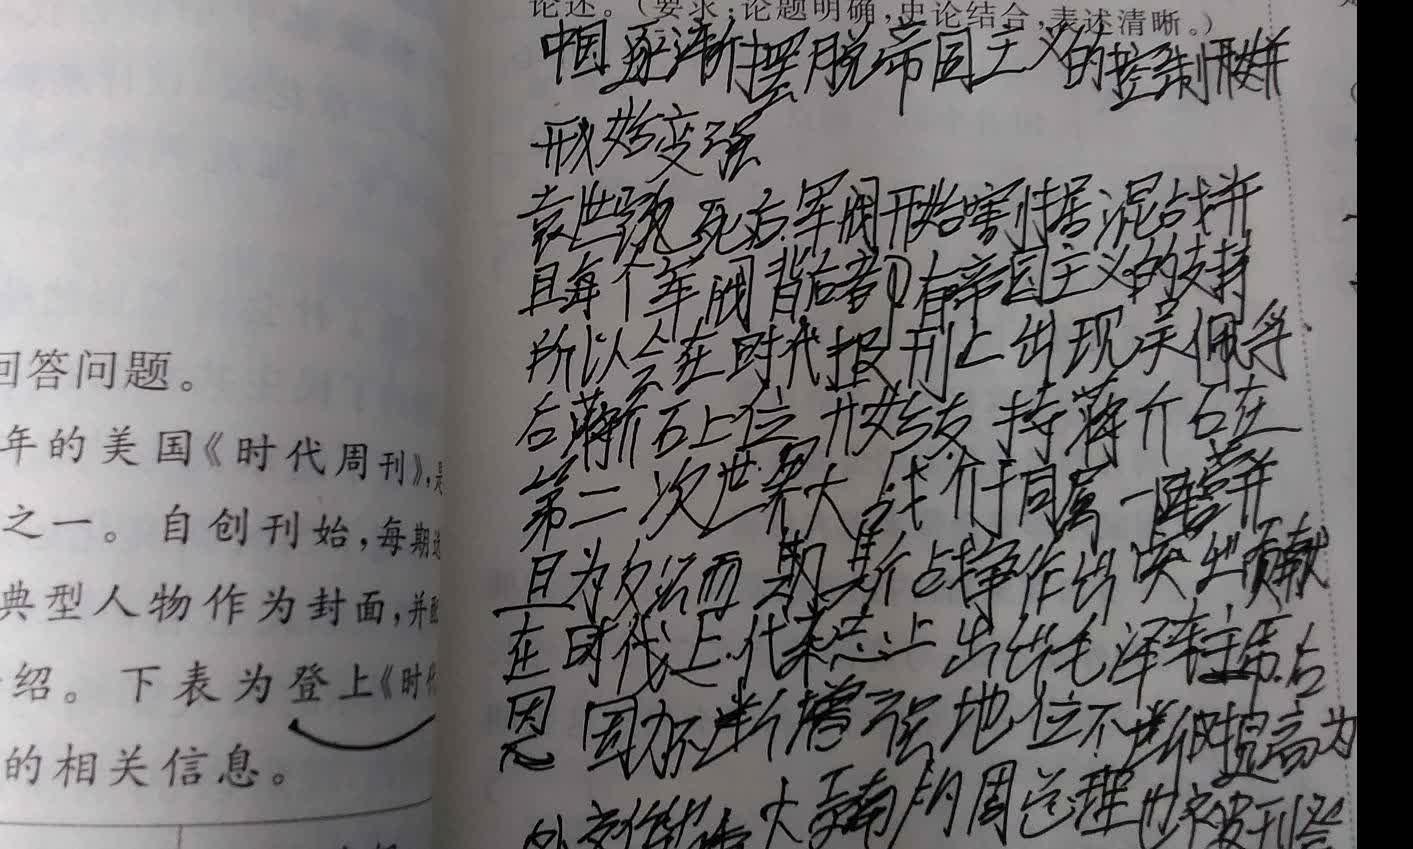 回答问题。
年的美国《时代周刊》,是
之一。自创刊始,每期选
典型人物作为封面,并配
绍。下表为登上《时代
的相关信息。
论述。(要求:论题明确,史论结合,表述清晰。)
中国逐渐摆脱帝国主义的控制并
开始变强
袁世凯死后军阀开始割据混战并
且每个军阀背后都有帝国主义的支持
所以会在时代报刊上出现吴佩孚.
后蒋介石上位开始支持蒋介石在
第二次世界大战介于同属一阵营并
且为反法西斯战争作出突出贡献
在时代上代杂志上出毛泽东主席后
因国力不断增强地位不断提高为
外交作大贡献的周总理也被刊登